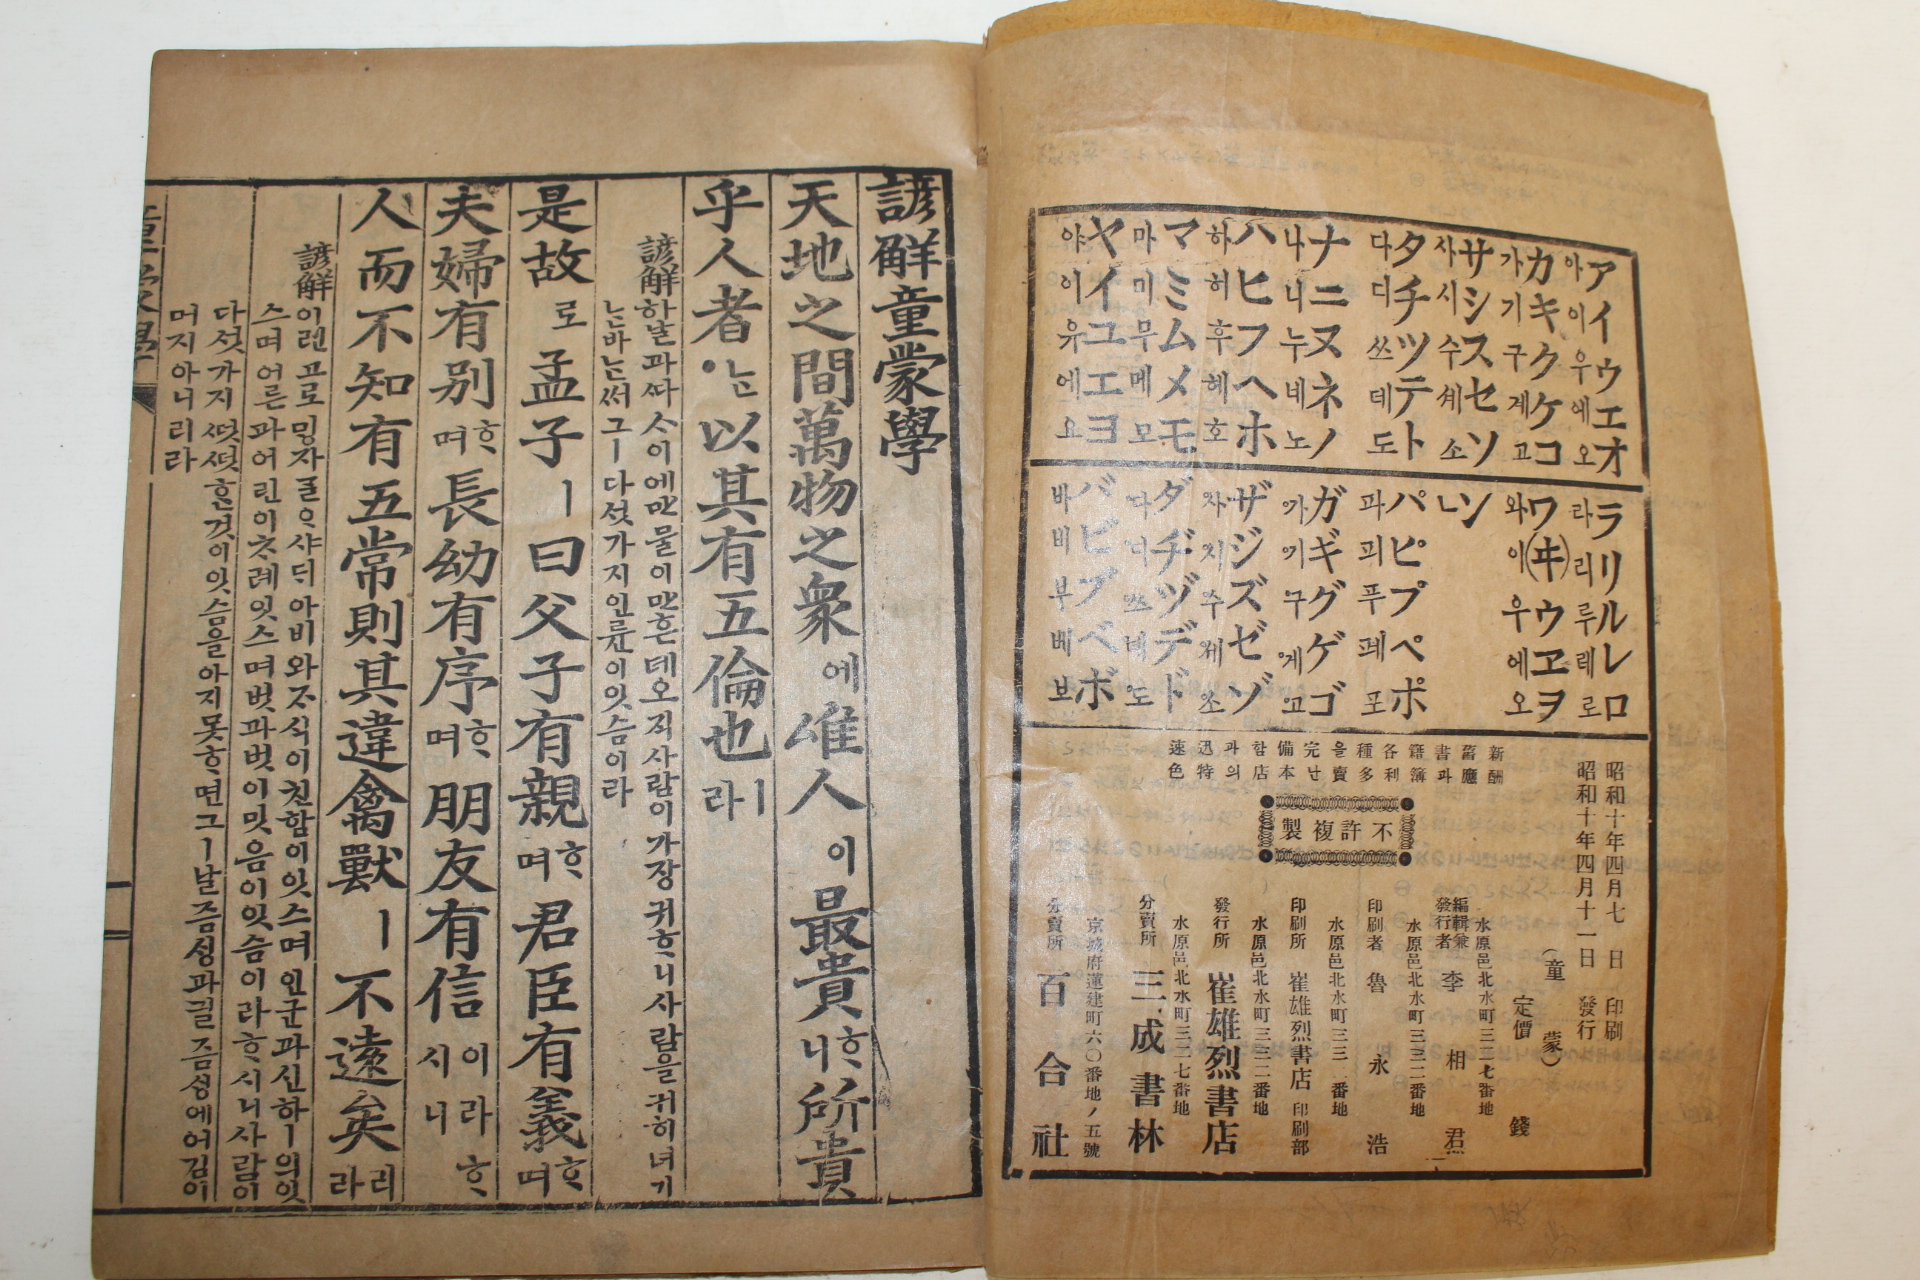 アイウエオ
아이우에오
カキクケコ
가기구계고
サシスセソ
사시수세소
タチツテト
다디쓰데도
ナニヌネノ
나니누네노
ハヒフヘホ
하히후헤호
マミムメモ
마미무메모
ヤイユエヨ
야이유에요
ラリルレロ
라리루레로
ワ(ヰ)ウヱヲ
와이우에오
ン
ㄴ
パピプペポ
파피푸페포
ガギグゲゴ
ザジズゼゾ
ダヂヅデド
バビブベボ
바비부베보
昭和十年四月七日 印刷
昭和十年四月十一日 發行
(童蒙)
定價 錢
新舊書籍各種을完備함과迅速
酬應과簿利多賣난本店의特色
不許複製
水原邑北水町三三七番地
編輯兼發行者 李相君
水原邑北水町三三二番地
印刷者 魯永浩
水原邑北水町三三一番地
印刷所 崔雄烈書店 印刷部
水原邑北水町三三二番地
發行所 崔雄烈書店
水原邑北水町三二七番地
分賣所 三成書林
京城府蓮建町六〇番地ノ五號
分賣所 百合社
諺解童蒙學
天地之間萬物之衆에唯人이最貴ᄒᆞ니所貴
乎人者ᄂᆞᆫ以其有五倫也ㅣ라
諺解하날과ᄯᅡ사이에만물이만흔데오직사람이가장귀ᄒᆞ니사람을귀히녀기
ᄂᆞᆫ바ᄂᆞᆫ써그ㅣ다섯가지인륜이잇슴이라
是故로孟子ㅣ曰父子有親ᄒᆞ며君臣有義ᄒᆞ며
夫婦有別ᄒᆞ며長幼有序ᄒᆞ며朋友有信이라ᄒᆞ시니
人而不知有五常則其違禽獸ㅣ不遠矣리라
諺解이런고로ᄆᆡᆼ자ᄀᆞᆯᄋᆞ샤ᄃᆡ아비와ᄌᆞ식이친함이잇스며인군과신하ㅣ의잇
스며어른과어린이ᄎᆞ례잇스며벗과벗이밋음이잇슴이라ᄒᆞ시니사람이
다섯가지ᄯᅥᆺᄯᅥᆺᄒᆞᆫ것이잇슴을아지못ᄒᆞ면그ㅣ날즘ᄉᆡᆼ과긜즘ᄉᆡᆼ에어김이
머지아니리라